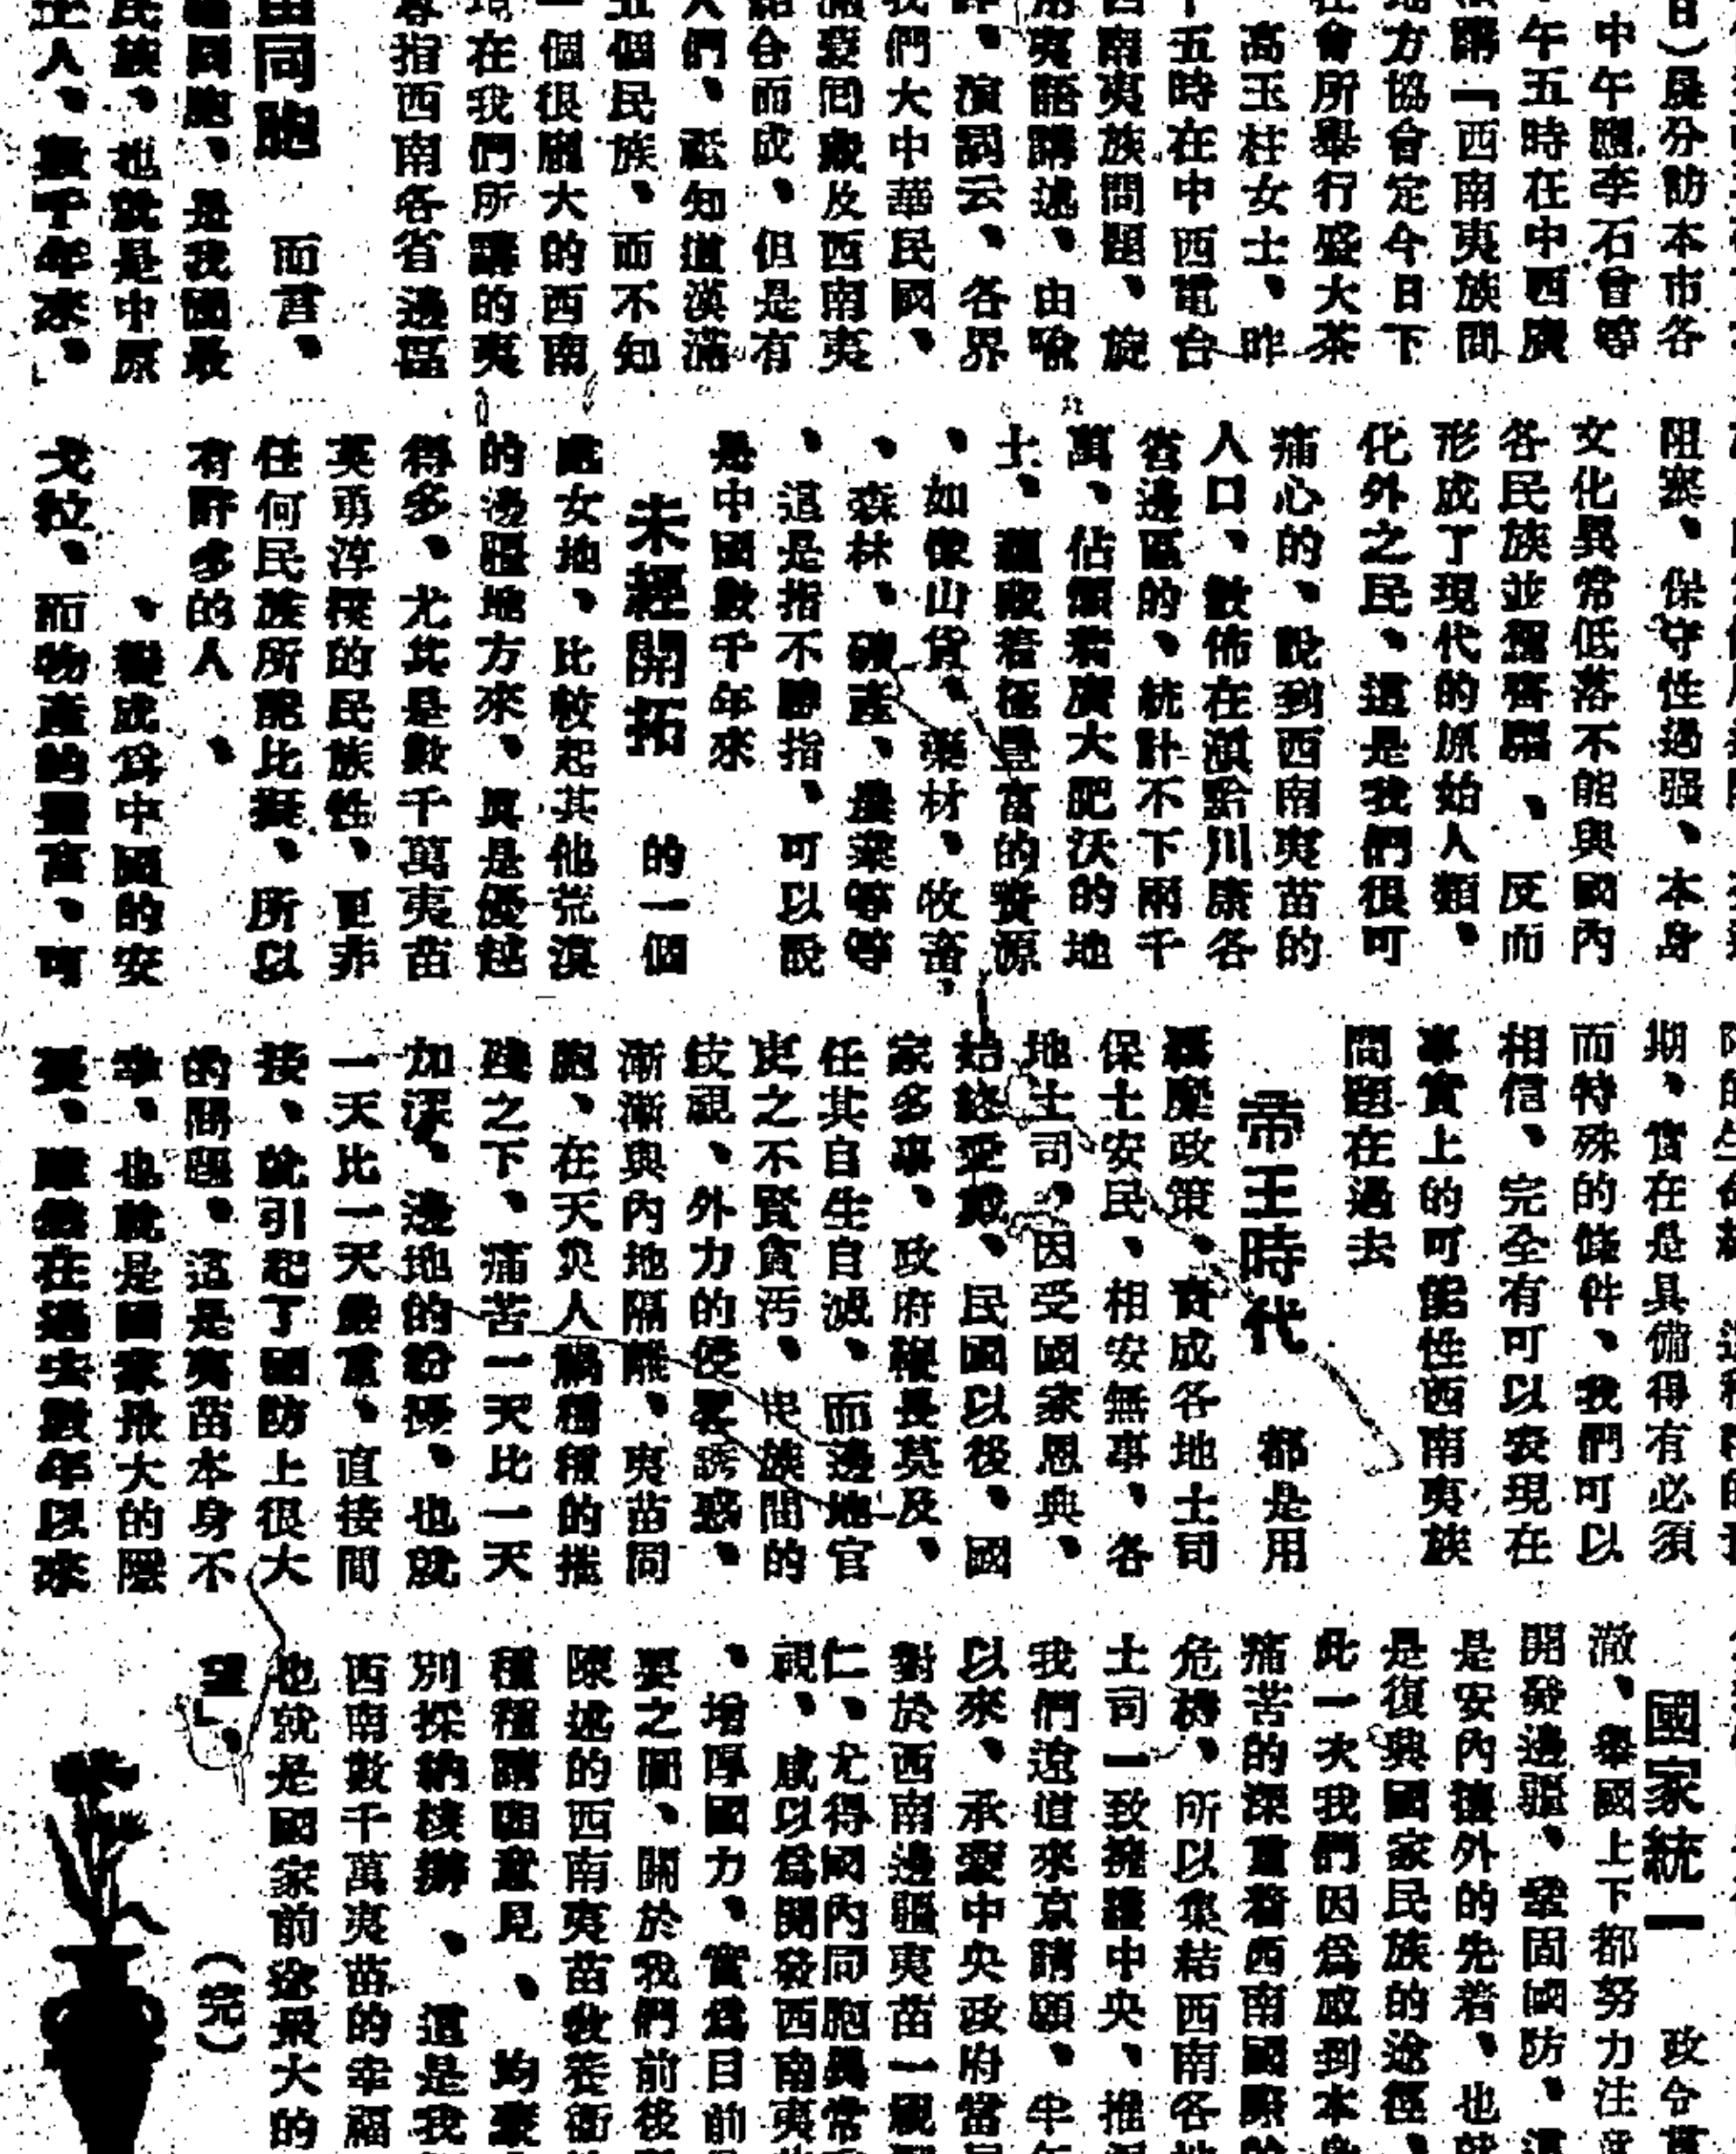 日）晨分訪本市各
中午應李石曾等
午五時在中西廣
講「西南夷族問
地方協會定今日下
會所舉行盛大茶
高玉柱女士、昨
午五時在中西電台
西南夷族問題、旋
用夷語講述、由喻
、演詞云、各界
我們大中華民國、
滿蒙回藏及西南夷
結合而成、但是有
人們、祗知道漢滿
五個民族、而不知
一個很龐大的西南
現在我們所講的夷
專指西南各省邊區
苗同胞　而言、
同胞、是我國最
民族、也就是中原
主人、數千年來、
阻塞、保守性過强、本身
文化異常低落不能與國內
各民族並駕齊驅、反而
形成了現代的原始人類、
化外之民、這是我們很可
痛心的、說到西南夷苗的
人口、散佈在滇黔川康各
省邊區的、統計不下兩千
萬、佔領着廣大肥沃的地
土、蘊藏着極豐富的資源
、如像山貨、藥材、牧畜、
、森林、礦產、農業等等
、這是指不勝指、可以說
是中國數千年來
未經開拓　的一個
處女地、比較起其他荒漠
的邊疆地方來、眞是優越
得多、尤其是數千萬夷苗
英勇淳樸的民族性、更非
任何民族所能比擬、所以
有許多的人、
、擬成爲中國的安
戈拉、而物產的豐富、可
期、實在是具備得有必須
而特殊的條件、我們可以
相信、完全有可以表現在
事實上的可能性西南夷族
問題在過去
帝王時代　都是用
羈縻政策、責成各地土司
保土安民、相安無事、各
地土司、因受國家恩典、
始終愛戴、民國以後、國
家多事、政府鞭長莫及、
任其自生自滅、而邊地官
吏之不賢貪污、民族間的
歧視、外力的侵畧誘惑、
漸漸與內地隔離、夷苗同
胞、在天災人禍種種的摧
殘之下、痛苦一天比一天
加深、邊地的紛擾、也就
一天比一天嚴重、直接間
接、就引起了國防上很大
的問題、這是夷苗本身不
幸、也就是國家最大的隱
憂、雖然在過去數年以來
國家統一　政令
澈、舉國上下都努力注
開發邊疆、鞏固國防、
是安內攘外的先着、也
是復興國家民族的途徑、
此一次我們因爲感到本身
痛苦的深重着西南國際的
危機、所以集結西南各地
土司一致擁護中央、推
我們遠道來京請願、半年
以來、承蒙中央政府當
對於西南邊疆夷苗一視
仁、尤得國內同胞異常
視、咸以爲開發西南夷
、增厚國力、實爲目前
要之圖、關於我們前後
陳述的西南夷苗敎養衞
種種請願意見、均蒙
別採納核辦、這是我
西南數千萬夷苗的幸福
也就是國家前途最大的
望」、
（完）